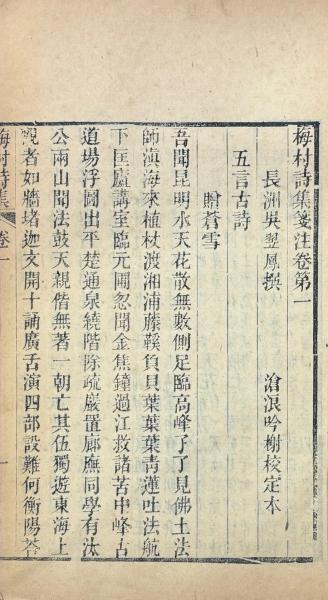 梅村詩集箋注卷第一
長洲吳翌鳳撰 滄浪吟榭校定本
五言古詩
贈蒼雪
吾聞昆明水天花散無數側足臨高峰了了見佛土法
師滇海來植杖渡湘浦藤鞵負貝葉葉葉青蓮吐法航
下匡廬講室臨元圃忽聞金焦鐘過江救諸苦中峰古
道場浮圖出平楚通泉繞階除疏巖置廊廡同學有汰
公兩山聞法鼓天親偕無著一朝亡其伍獨遊東海上
從者如牆堵迦文開十誦廣舌演四部設難何衡陽荅
梅村詩集 卷一 一